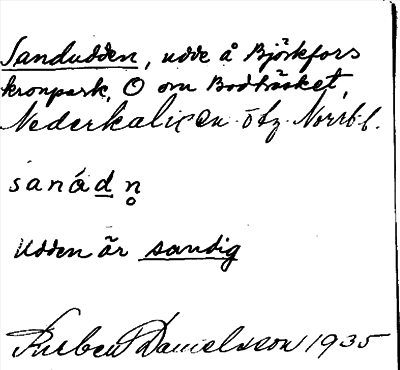 Sandudden, udde å Björkfors
kronpark, O om Bodträsket,
Nederkalix sn öfg. Norrb.
sanádn̥
Udden är sandig
Ruben Danielsson 1935